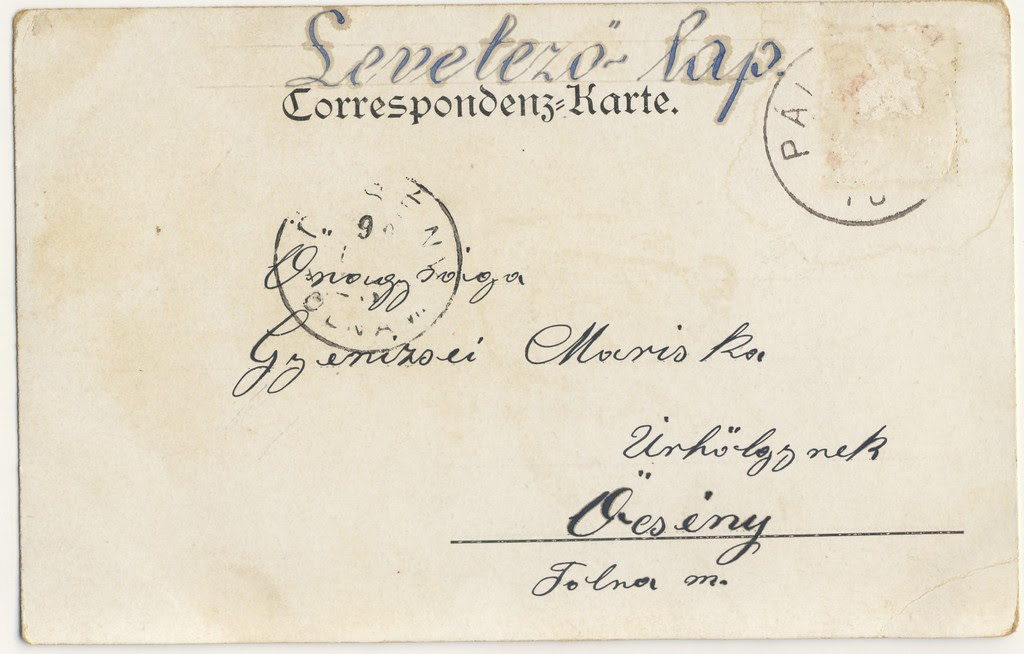 Levelező-lap.
Correspondenz-Karte.
PÁ
9
Önagysága
Gyenizsei Mariska
Úrhölgynek
Őcsény
Tolna m.